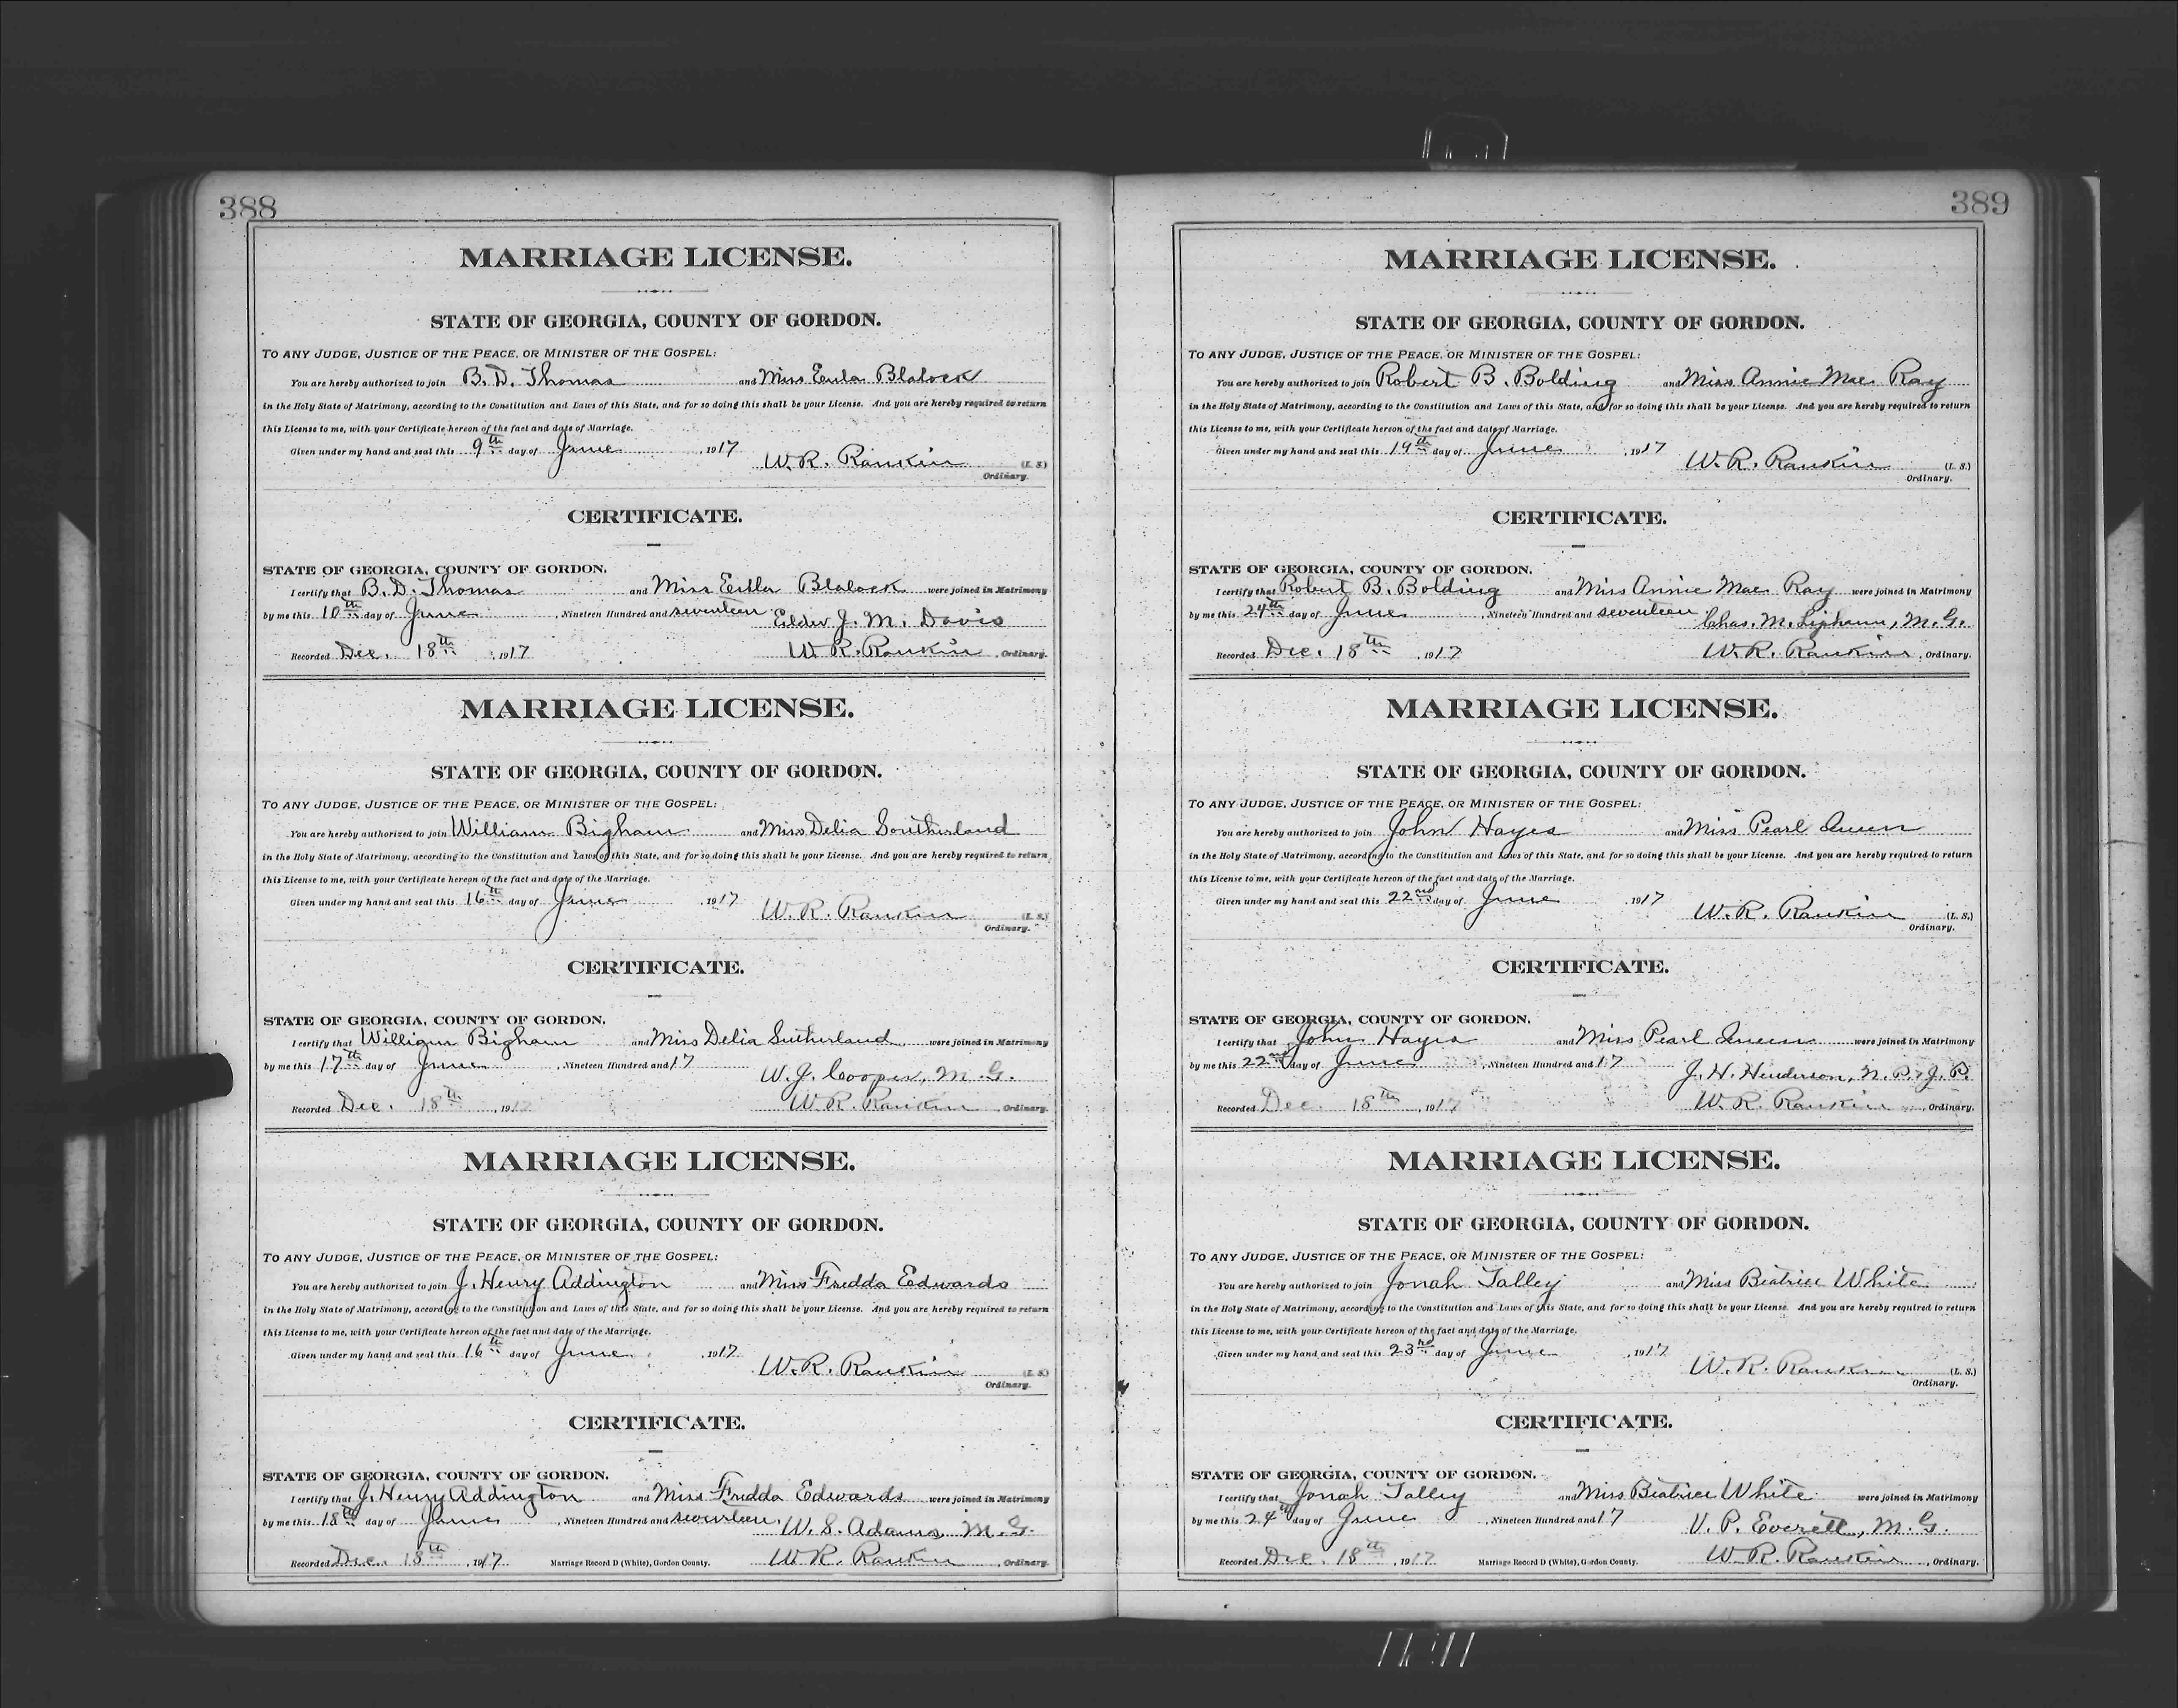 388
MARRIAGE LICENSE.
STATE OF GEORGIA, COUNTY OF GORDON.
TO ANY JUDGE, JUSTICE OF THE PEACE, OR MINISTER OF THE GOSPEL:
You are hereby authorized to join B. D. Thomas and Miss Eula Blalock
in the Holy State of Matrimony, according to the Constitution and Laws of this State, and for so doing this shall be your License. And you are hereby required to return
this License to me, with your Certificate hereon of the fact and date of Marriage.
Given under my hand and seal this 9th day of June, 1917
W. R. Rankin (L. S.)
Ordinary.
CERTIFICATE.
STATE OF GEORGIA, COUNTY OF GORDON.
I certify that B. D. Thomas and Miss Eula Blalock were joined in Matrimony
by me this 10th day of June, Nineteen Hundred and seventeen Elder J. M. Davis
Recorded Dec. 18th, 1917 W. R. Rankin, Ordinary.
MARRIAGE LICENSE.
STATE OF GEORGIA, COUNTY OF GORDON.
TO ANY JUDGE, JUSTICE OF THE PEACE, OR MINISTER OF THE GOSPEL:
You are hereby authorized to join William Bigham and Miss Delia Southerland
in the Holy State of Matrimony, according to the Constitution and Laws of this State, and for so doing this shall be your License. And you are hereby required to return
this License to me, with your Certificate hereon of the fact and date of the Marriage.
Given under my hand and seal this 16th day of June, 1917
W. R. Rankin (L. S.)
Ordinary.
CERTIFICATE.
STATE OF GEORGIA, COUNTY OF GORDON.
I certify that William Bigham and Miss Delia Sutherland were joined in Matrimony
by me this 17th day of June, Nineteen Hundred and 17 W. J. Cooper, M. G.
Recorded Dec. 18th, 1917 W. R. Rankin, Ordinary.
MARRIAGE LICENSE.
STATE OF GEORGIA, COUNTY OF GORDON.
TO ANY JUDGE, JUSTICE OF THE PEACE, OR MINISTER OF THE GOSPEL:
You are hereby authorized to join J. Henry Addington and Miss Fredda Edwards
in the Holy State of Matrimony, according to the Constitution and Laws of this State, and for so doing this shall be your License. And you are hereby required to return
this License to me, with your Certificate hereon of the fact and date of the Marriage.
Given under my hand and seal this 16th day of June, 1917
W. R. Rankin (L. S.)
Ordinary.
CERTIFICATE.
STATE OF GEORGIA, COUNTY OF GORDON.
I certify that J. Henry Addington and Miss Fredda Edwards were joined in Matrimony
by me this 18th day of June, Nineteen Hundred and seventeen. W. S. Adams, M. G.
Recorded Dec. 18th, 1917 Marriage Record D (White), Gordon County. W. R. Rankin, Ordinary.
389
MARRIAGE LICENSE.
STATE OF GEORGIA, COUNTY OF GORDON.
TO ANY JUDGE, JUSTICE OF THE PEACE, OR MINISTER OF THE GOSPEL:
You are hereby authorized to join Robert B. Bolding and Miss Annie Mae Ray
in the Holy State of Matrimony, according to the Constitution and Laws of this State, and for so doing this shall be your License. And you are hereby required to return
this License to me, with your Certificate hereon of the fact and date of Marriage.
Given under my hand and seal this 19th day of June, 1917
W. R. Rankin (L. S.)
Ordinary.
CERTIFICATE.
STATE OF GEORGIA, COUNTY OF GORDON.
I certify that Robert B. Bolding and Miss Annie Mae Ray were joined in Matrimony
by me this 24th day of June, Nineteen Hundred and seventeen Chas. M. Lipham, M. G.
Recorded Dec. 18th, 1917 W. R. Rankin, Ordinary.
MARRIAGE LICENSE.
STATE OF GEORGIA, COUNTY OF GORDON.
TO ANY JUDGE, JUSTICE OF THE PEACE, OR MINISTER OF THE GOSPEL:
You are hereby authorized to join John Hayes and Miss Pearl
in the Holy State of Matrimony, according to the Constitution and Laws of this State, and for so doing this shall be your License. And you are hereby required to return
this License to me, with your Certificate hereon of the fact and date of the Marriage.
Given under my hand and seal this 22nd day of June, 1917
W. R. Rankin (L. S.)
Ordinary.
CERTIFICATE.
STATE OF GEORGIA, COUNTY OF GORDON.
I certify that John Hayes and Miss Pearl were joined in Matrimony
by me this 22nd day of June, Nineteen Hundred and 17 J. H. Henderson, N. P. & J. P.
Recorded Dec. 18th, 1917 W. R. Rankin, Ordinary.
MARRIAGE LICENSE.
STATE OF GEORGIA, COUNTY OF GORDON.
TO ANY JUDGE, JUSTICE OF THE PEACE, OR MINISTER OF THE GOSPEL:
You are hereby authorized to join Jonah Talley and Miss Beatrice White
in the Holy State of Matrimony, according to the Constitution and Laws of this State, and for so doing this shall be your License. And you are hereby required to return
this License to me, with your Certificate hereon of the fact and date of the Marriage.
Given under my hand and seal this 23rd day of June, 1917
W. R. Rankin (L. S.)
Ordinary.
CERTIFICATE.
STATE OF GEORGIA, COUNTY OF GORDON.
I certify that Jonah Talley and Miss Beatrice White were joined in Matrimony
by me this 24th day of June, Nineteen Hundred and 17 V. P. Everett, M. G.
Recorded Dec. 18th, 1917 Marriage Record D (White), Gordon County. W. R. Rankin, Ordinary.